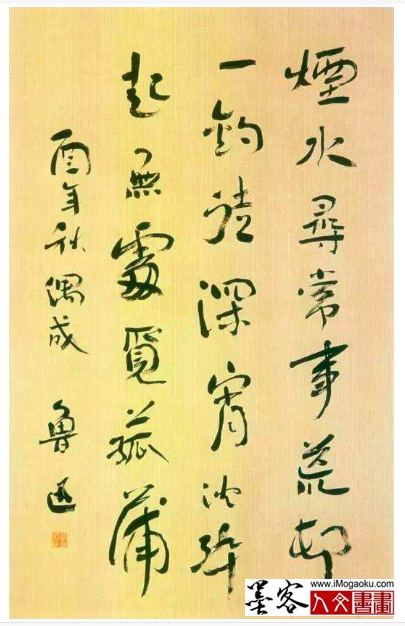 煙水尋常事荒邨
一釣徒深宵沈醉
起無處覓菰蒲
酉年秋偶成 魯迅
墨客
www.iMogaoku.com
人文書畫